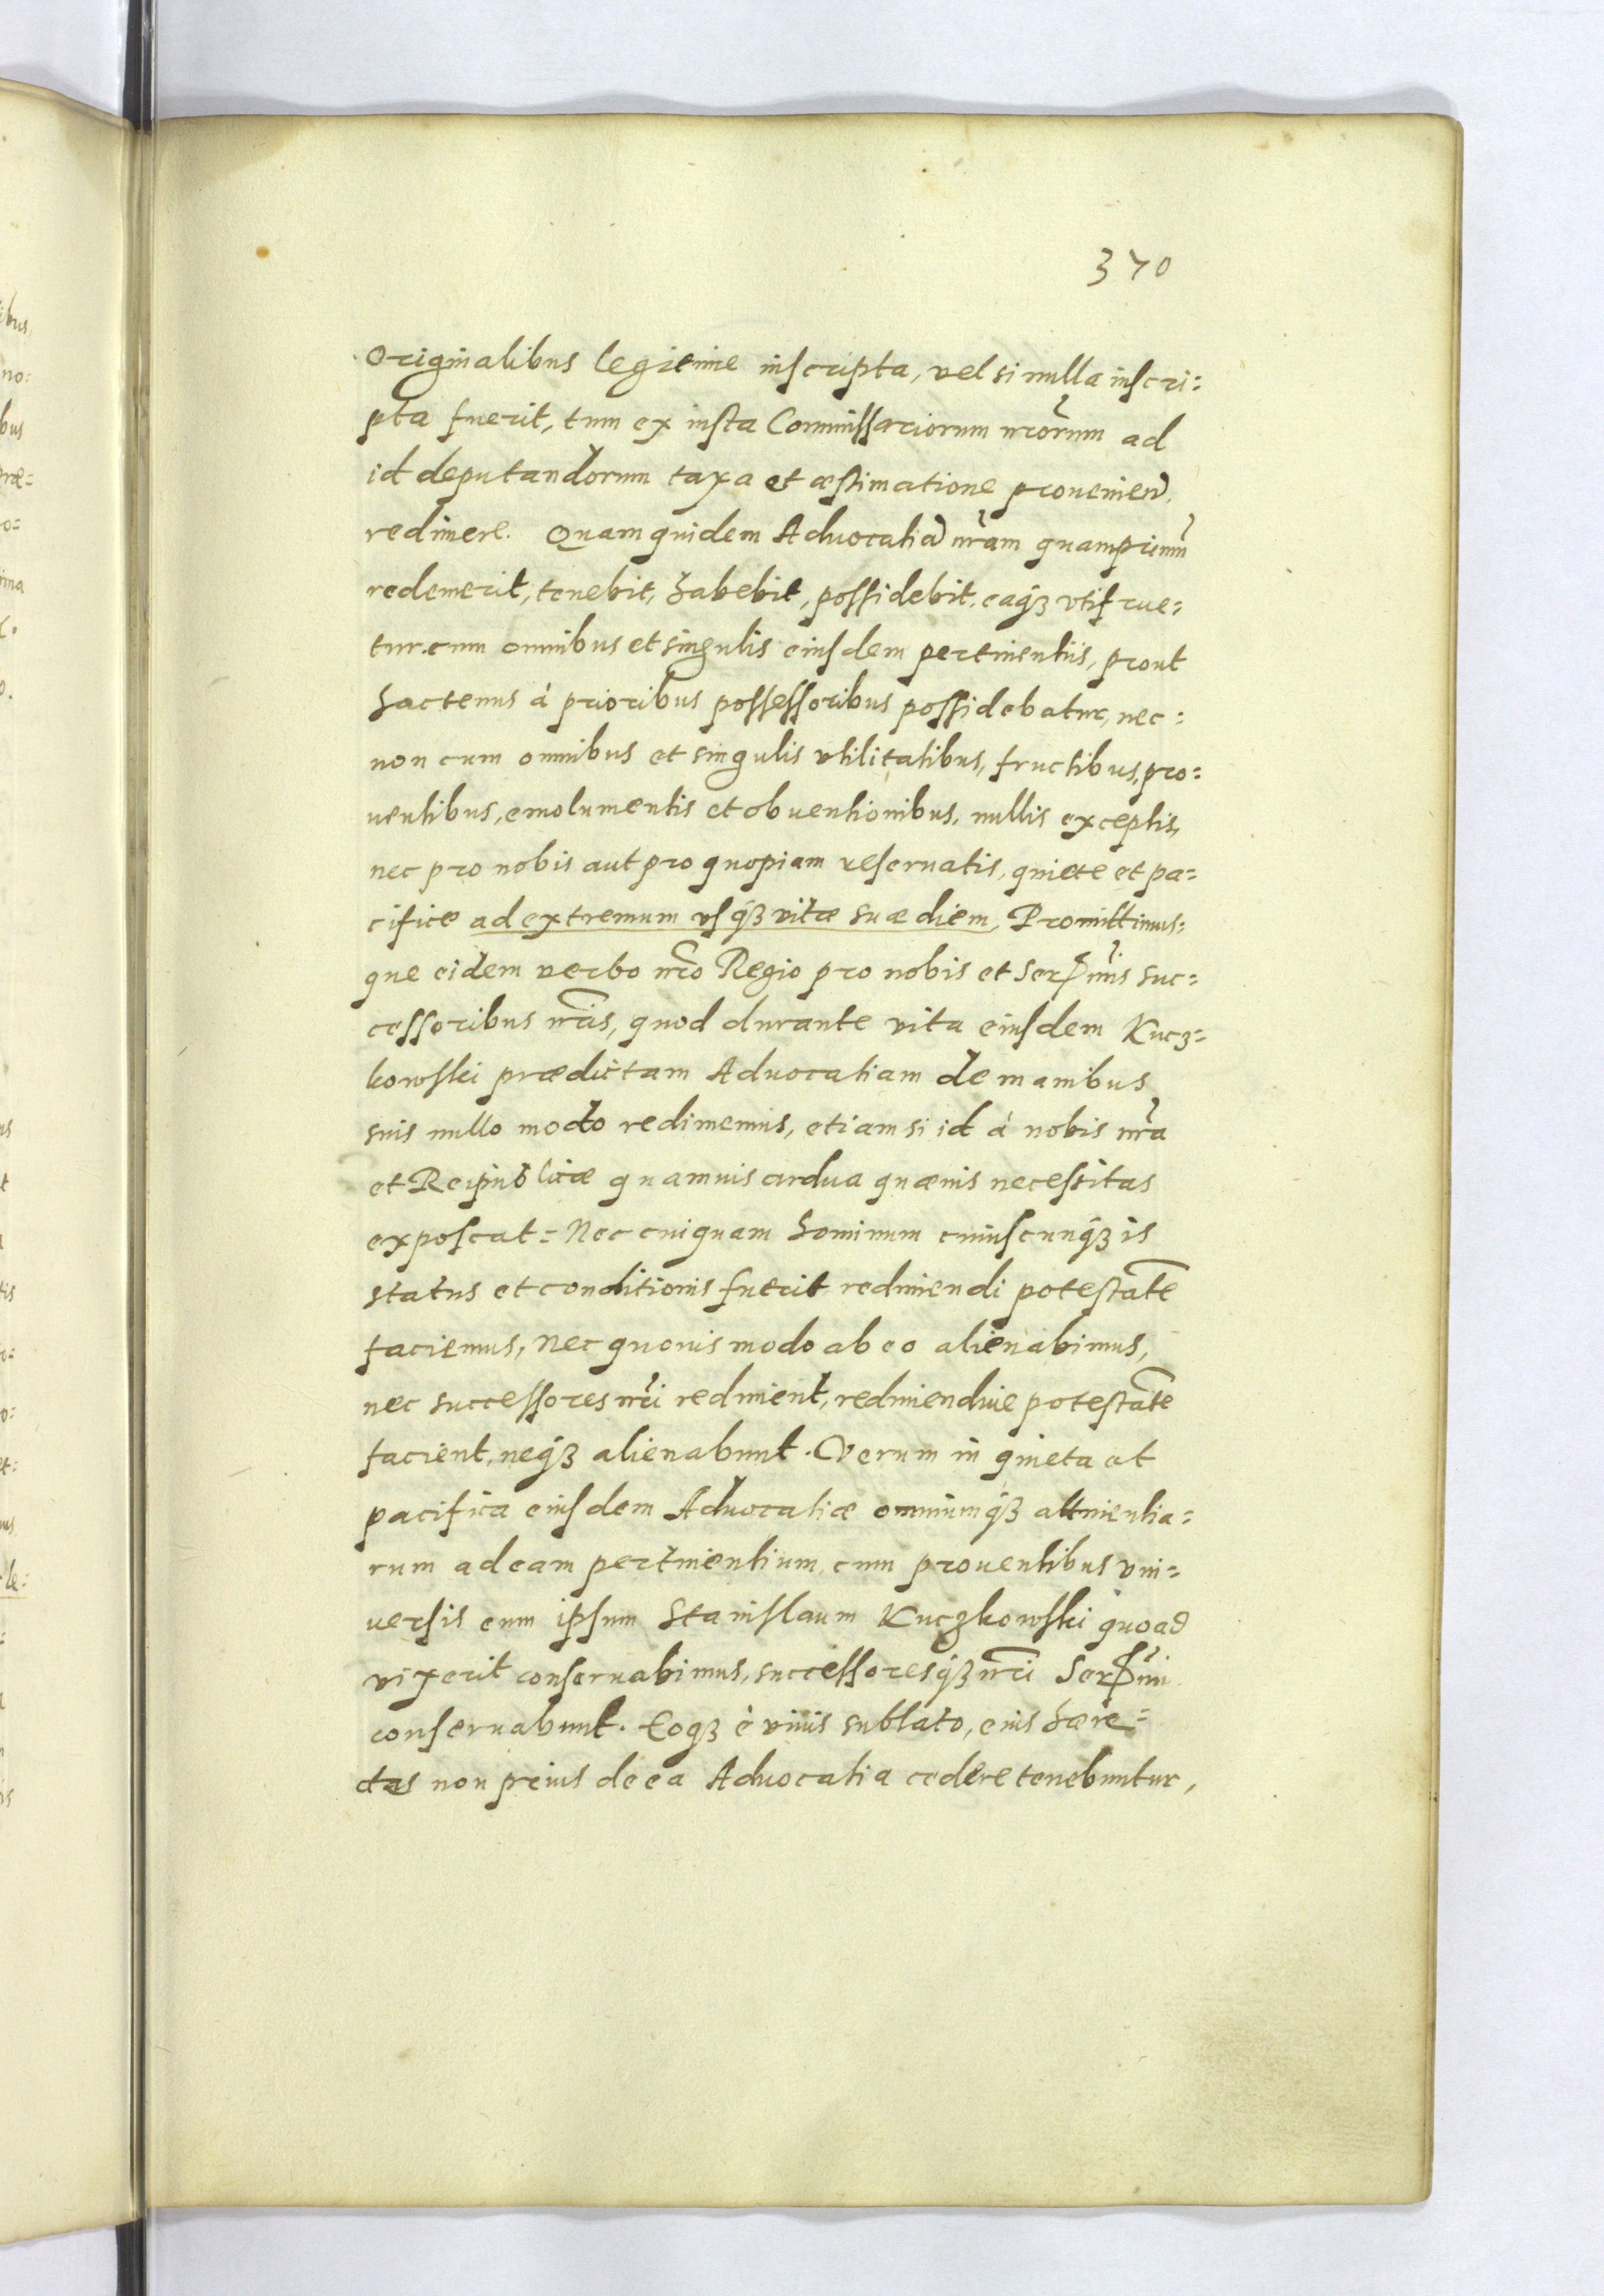 370
Originalibus legitime inscripta, vel si nulla inscri=
pta fuerit, tum ex iusta Commissariorum nrõrum ad
id deputandorum taxa et æstimatione prouenien̄,
redimere. Quam quidem Aduocatiā nr̃am quamprimũ
redemerit, tenebit, habebit, possidebit, eaq́ȝ vtifrue=
tur. cum omnibus et singulis eiusdem pertinentiis, prout
hactenus à prioribus possessoribus possidebatur, nec=
non cum omnibus et singulis vtilitatibus, fructibus, pro=
uentibus, emolumentis et obuentionibus, nullis exceptis,
nec pro nobis aut pro quopiam reseruatis, quiete et pa=
cifice ad extremum vsq́ȝ vitæ suæ diem, Promittimus=
que eidem verbo nrõ Regio pro nobis et Serꝑm̃is suc=
cessoribus nrĩs, quod durante vita eiusdem Kucz=
kowski prædictam Aduocatiam de manibus
suis nullo modo redimemus, etiam si id à nobis nr̃a
et Reipublicæ quamuis ardua quæuis necessitas
exposcat= Nec cuiquam hominum cuiuscunq́ȝ is
status et conditionis fuerit redimendi potestatẽ
faciemus, nec quouis modo ab eo alienabimus,
nec successores nr̃i redimient, redimendiue potestatẽ
facient, neq́ȝ alienabunt. Verum in quieta et
pacifica eiusdem Aduocatiæ omniumq́ȝ attinentia=
rum ad eam pertinentium, cum prouentibus vni=
uersis eum ipsum Stanislaum Kuczkowski quoad
vixerit conseruabimus, successoresq́ȝ nr̃i Serꝑm̃i
conseruabunt. Eoqȝ è viuis sublato, eius hære=
des non prius de ea Aduocatia cedere tenebuntur,